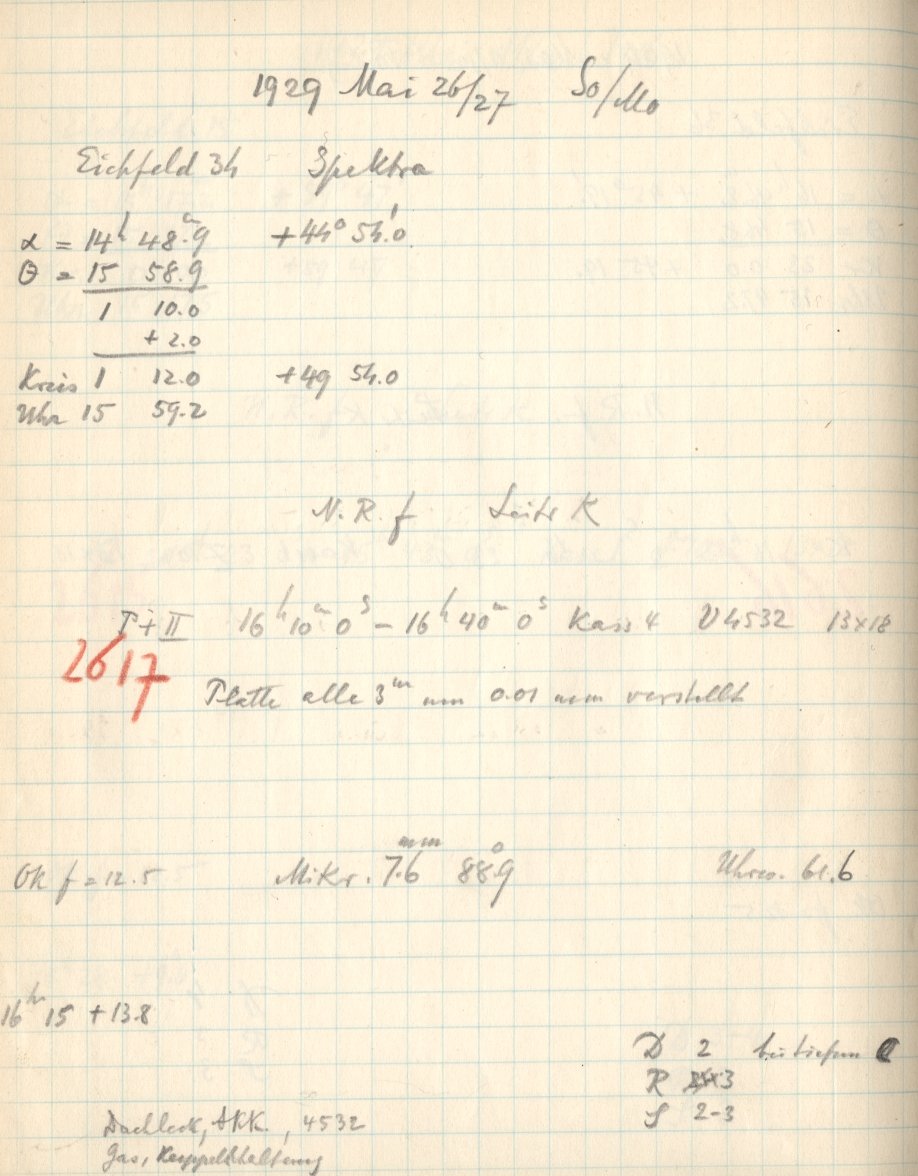 1929 Mai 26/27 So/Mo
Eichfeld 34 Spektra
α = 14h 48.m9 +44° 54.'0
θ = 15 58.9
1 10.0
+ 2.0
Kreis 1 12.0 +49 54.0
Uhr 15 59.2
N.R. f Leitr K
I + II 16h 10m 0s – 16h 40m 0s Kass 4 U4532 13×18
2617
Platte alle 3m um 0.01 mm verstellt
Ok f = 12.5 Mikr. 7.6mm 88.°9 Uhrw. 61.6
16h 15 + 13.8
D 2 bei tiefem
R 3
S 2-3
4532
Gas,